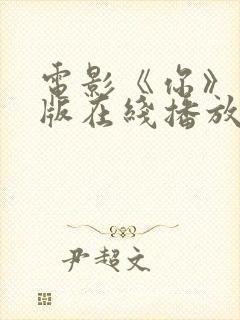 電影《你》
版在綫播放
尹超文